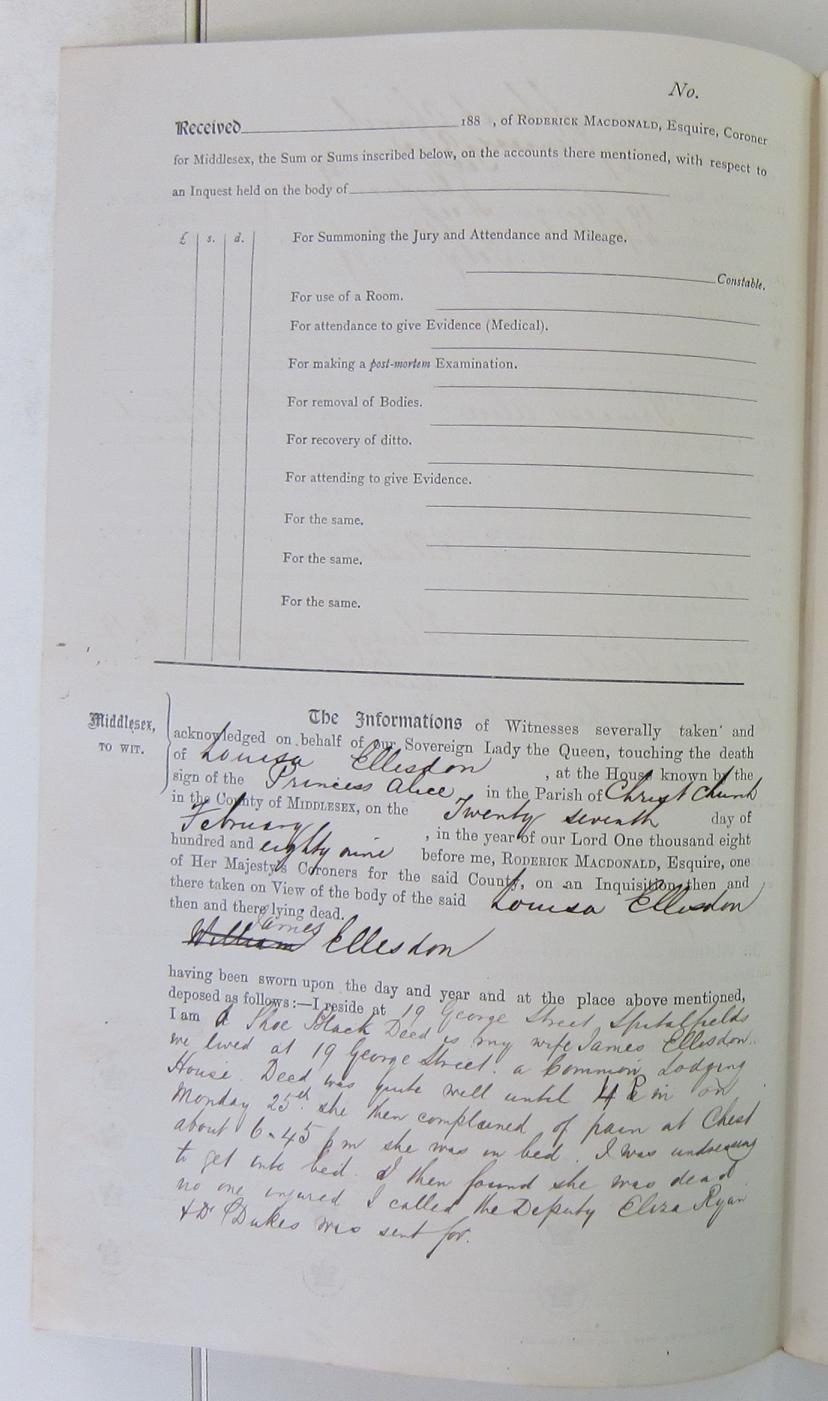 No.
Received 188 , of RODERICK MACDONALD, Esquire, Coroner
for Middlesex, the Sum or Sums inscribed below, on the accounts there mentioned, with respect to
an Inquest held on the body of
£ s. d. For Summoning the Jury and Attendance and Mileage.
Constable.
For use of a Room.
For attendance to give Evidence (Medical).
For making a post-mortem Examination.
For removal of Bodies.
For recovery of ditto.
For attending to give Evidence.
For the same.
For the same.
For the same.
Middlesex,
TO WIT.
The Informations of Witnesses severally taken and
acknowledged on behalf of our Sovereign Lady the Queen, touching the death
of Louisa Ellesdon , at the House known by the
sign of the Princess Alice in the Parish of Christ Church
in the County of MIDDLESEX, on the Twenty seventh day of
February , in the year of our Lord One thousand eight
hundred and eighty nine before me, RODERICK MACDONALD, Esquire, one
of Her Majesty's Coroners for the said County, on an Inquisition then and
there taken on View of the body of the said Louisa Ellesdon
then and there lying dead.
James
William Ellesdon
having been sworn upon the day and year and at the place above mentioned,
deposed as follows:—I reside at 19 George Street Spitalfields
I am a Shoe Black Deed is my wife James Ellesdon.
we lived at 19 George Street. a Common Lodging
House. Deed was quite well until 4 Pm on
Monday 25th. she then complained of pain at Chest
about 6.45 pm she was in bed. I was undressing
to get into bed. I then found she was dead.
no one injured I called the Deputy Eliza Ryan
& Dr Dukes was sent for.